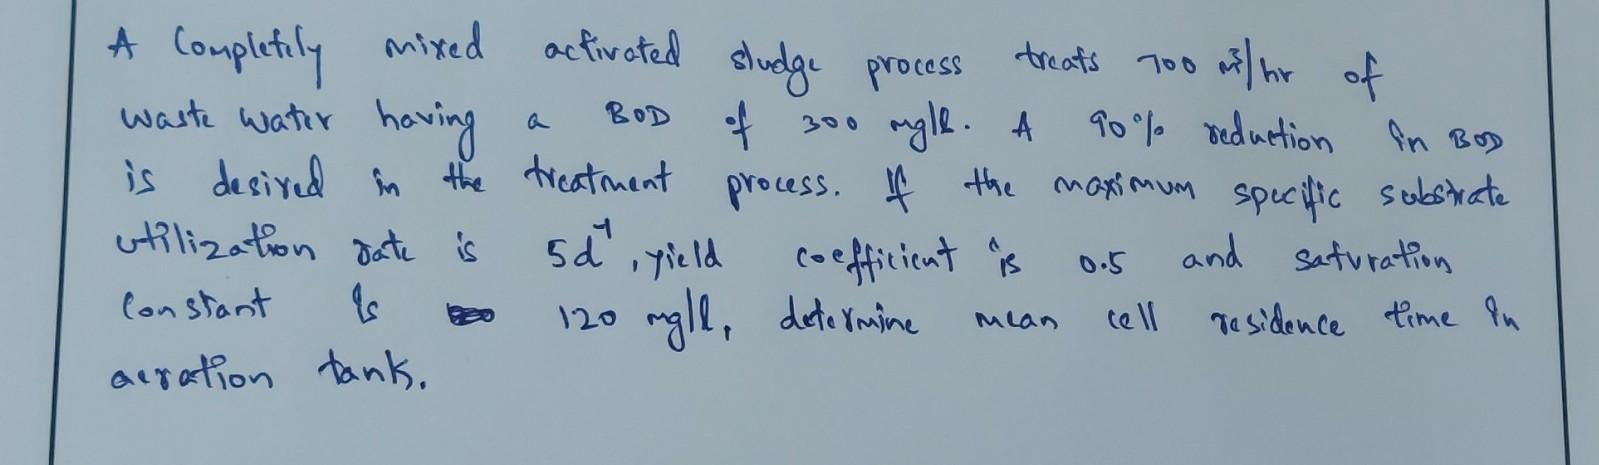 A Completely mixed activated sludge process treats 700 m³/hr of
waste water having a BOD of 300 mg/l. A 90% reduction in BOD
is desired in the treatment process. If the maximum specific substrate
utilization rate is 5d⁻¹, yield coefficient is 0.5 and saturation
Constant is 120 mg/l, determine mean cell residence time in
aeration tank.